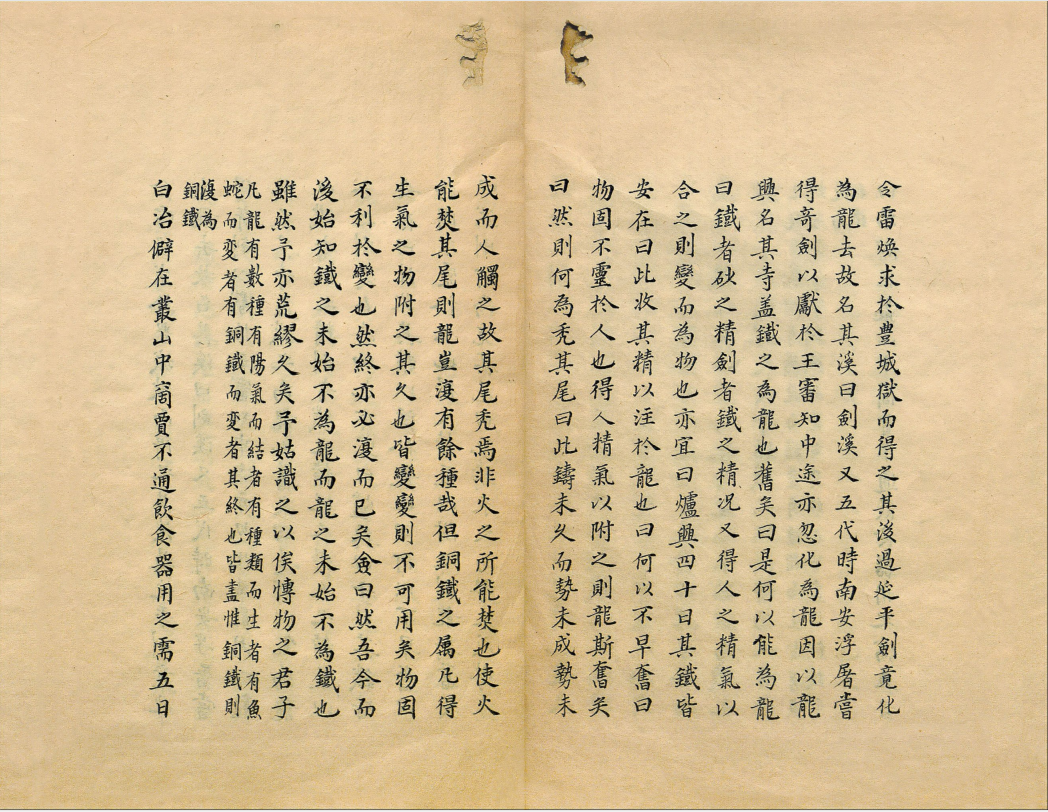 令雷煥求於豐城獄而得之其後過延平劍竟化
為龍去故名其溪曰劍溪又五代時南安浮屠嘗
得奇劍以獻於王審知中途亦忽化為龍因以龍
興名其寺盖鐵之為龍也舊矣曰是何以能為龍
曰鐵者砂之精劍者鐵之精况又得人之精氣以
合之則變而為物也亦宜曰爐興四十日其鐵皆
安在曰此收其精以注於龍也曰何以不早奮曰
物固不靈於人也得人精氣以附之則龍斯奮矣
曰然則何為禿其尾曰此鑄未久而勢未成勢未
成而人觸之故其尾禿焉非火之所能焚也使火
能焚其尾則龍豈復有餘種哉但銅鐵之属凡得
生氣之物附之其久也皆變變則不可用矣物固
不利於變也然終亦必復而已矣僉曰然吾今而
後始知鐵之未始不為龍而龍之未始不為鐵也
雖然予亦荒繆久矣予姑識之以俟博物之君子
凡龍有數種有陽氣而結者有種類而生者有魚
蛇而变者有銅鐵而变者其終也皆盡惟銅鐵則
復為
銅鐵
白冶僻在叢山中商賈不通飲食器用之需五日